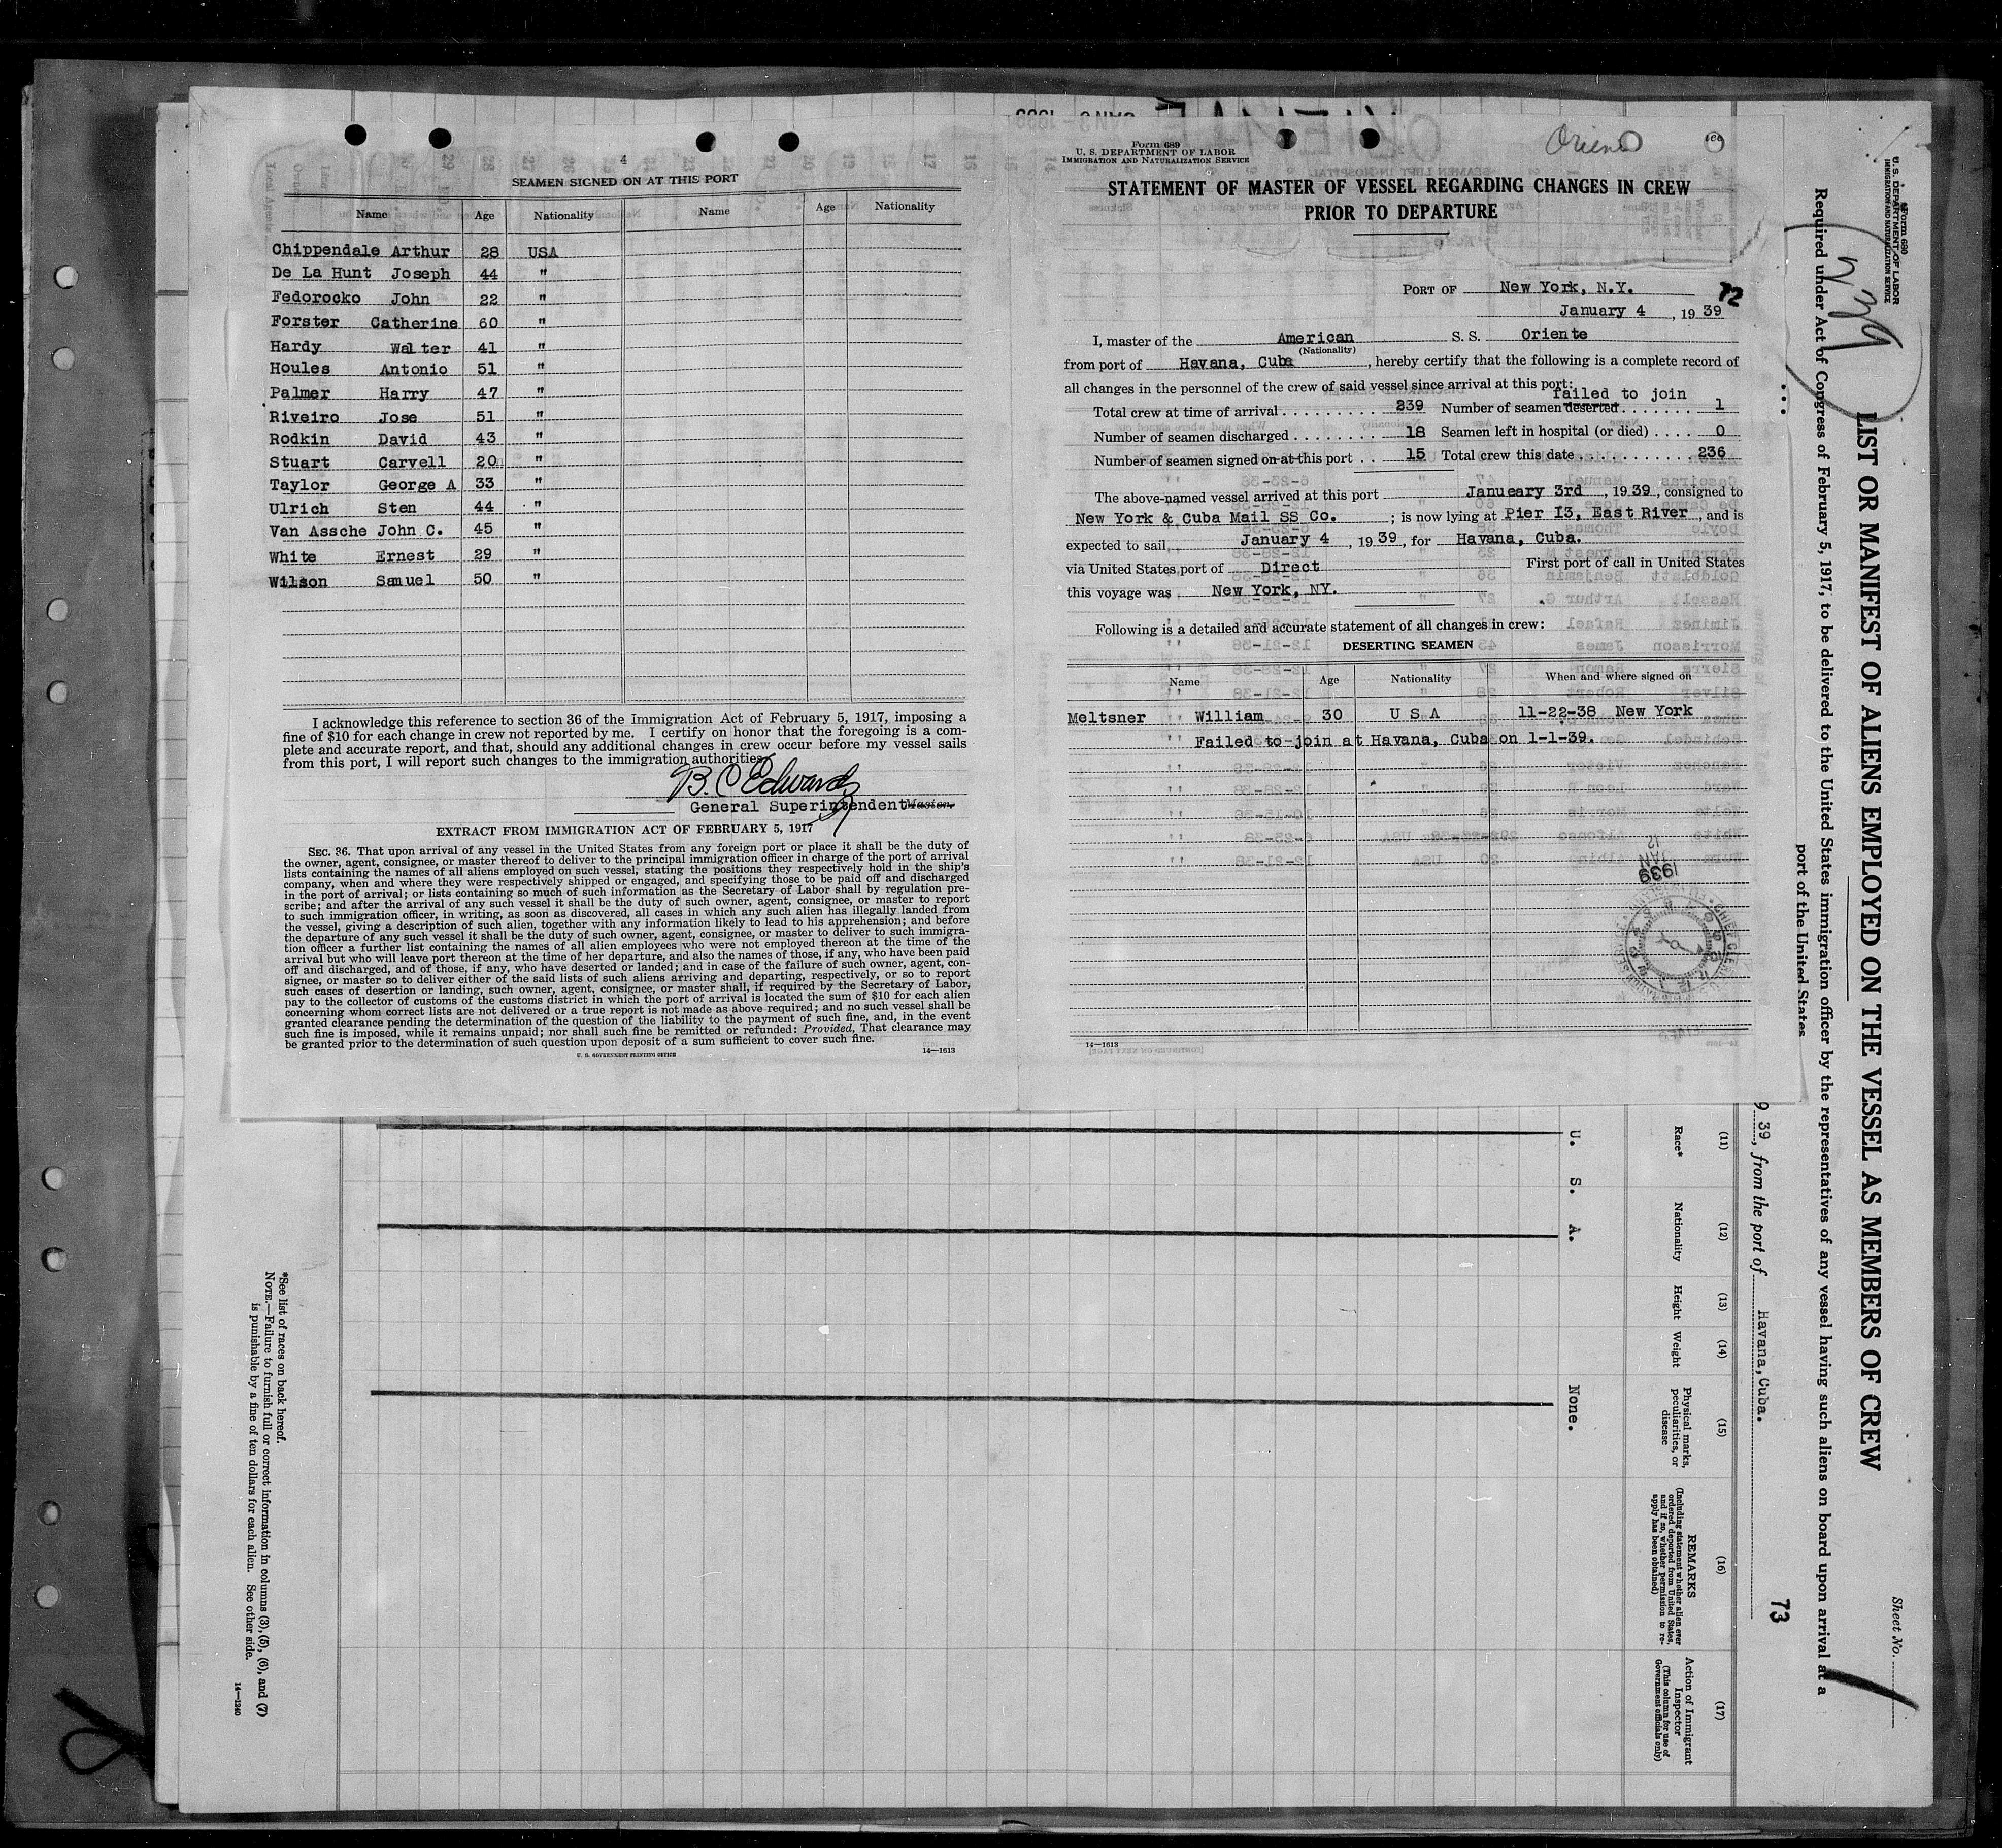 4
SEAMEN SIGNED ON AT THIS PORT
Name Age Nationality Name Age Nationality
Chippendale Arthur 28 USA
De La Hunt Joseph 44 "
Fedorocko John 22 "
Forster Catherine 60 "
Hardy Walter 41 "
Houles Antonio 51 "
Palmer Harry 47 "
Riveiro Jose 51 "
Rodkin David 43 "
Stuart Carvell 20 "
Taylor George A 33 "
Ulrich Sten 44 "
Van Assche John C. 45 "
White Ernest 29 "
Wilson Samuel 50 "
I acknowledge this reference to section 36 of the Immigration Act of February 5, 1917, imposing a
fine of $10 for each change in crew not reported by me. I certify on honor that the foregoing is a com-
plete and accurate report, and that, should any additional changes in crew occur before my vessel sails
from this port, I will report such changes to the immigration authorities.
B. C. Edwards
General Superintendent Master.
EXTRACT FROM IMMIGRATION ACT OF FEBRUARY 5, 1917
SEC. 36. That upon arrival of any vessel in the United States from any foreign port or place it shall be the duty of
the owner, agent, consignee, or master thereof to deliver to the principal immigration officer in charge of the port of arrival
lists containing the names of all aliens employed on such vessel, stating the positions they respectively hold in the ship's
company, when and where they were respectively shipped or engaged, and specifying those to be paid off and discharged
in the port of arrival; or lists containing so much of such information as the Secretary of Labor shall by regulation pre-
scribe; and after the arrival of any such vessel it shall be the duty of such owner, agent, consignee, or master to report
to such immigration officer, in writing, as soon as discovered, all cases in which any such alien has illegally landed from
the vessel, giving a description of such alien, together with any information likely to lead to his apprehension; and before
the departure of any such vessel it shall be the duty of such owner, agent, consignee, or master to deliver to such immigra-
tion officer a further list containing the names of all alien employees who were not employed thereon at the time of the
arrival but who will leave port thereon at the time of her departure, and also the names of those, if any, who have been paid
off and discharged, and of those, if any, who have deserted or landed; and in case of the failure of such owner, agent, con-
signee, or master so to deliver either of the said lists of such aliens arriving and departing, respectively, or so to report
such cases of desertion or landing, such owner, agent, consignee, or master shall, if required by the Secretary of Labor,
pay to the collector of customs of the customs district in which the port of arrival is located the sum of $10 for each alien
concerning whom correct lists are not delivered or a true report is not made as above required; and no such vessel shall be
granted clearance pending the determination of the question of the liability to the payment of such fine, and, in the event
such fine is imposed, while it remains unpaid; nor shall such fine be remitted or refunded: Provided, That clearance may
be granted prior to the determination of such question upon deposit of a sum sufficient to cover such fine.
U. S. GOVERNMENT PRINTING OFFICE 14—1613
Form 689
U. S. DEPARTMENT OF LABOR
IMMIGRATION AND NATURALIZATION SERVICE
STATEMENT OF MASTER OF VESSEL REGARDING CHANGES IN CREW
PRIOR TO DEPARTURE
PORT OF New York, N.Y. 72
January 4, 1939
I, master of the American S. S. Oriente
(Nationality)
from port of Havana, Cuba, hereby certify that the following is a complete record of
all changes in the personnel of the crew of said vessel since arrival at this port:
failed to join
Total crew at time of arrival 239 Number of seamen deserted 1
Number of seamen discharged 18 Seamen left in hospital (or died) 0
Number of seamen signed on at this port 15 Total crew this date 236
The above-named vessel arrived at this port Janueary 3rd, 1939, consigned to
New York & Cuba Mail SS Co. ; is now lying at Pier I3, East River, and is
expected to sail January 4, 1939, for Havana, Cuba.
via United States port of Direct First port of call in United States
this voyage was New York, NY.
Following is a detailed and accurate statement of all changes in crew:
DESERTING SEAMEN
Name Age Nationality When and where signed on
Meltsner William 30 U S A 11-22-38 New York
Failed to join at Havana, Cuba on 1-1-39.
1939 JAN
14—1613
Form 680
U. S. DEPARTMENT OF LABOR
IMMIGRATION AND NATURALIZATION SERVICE
239
Sheet No.
LIST OR MANIFEST OF ALIENS EMPLOYED ON THE VESSEL AS MEMBERS OF CREW
Required under Act of Congress of February 5, 1917, to be delivered to the United States immigration officer by the representatives of any vessel having such aliens on board upon arrival at a
port of the United States
73
9 39, from the port of Havana, Cuba.
(11) (12) (13) (14) (15) (16) (17)
Race* Nationality Height Weight
Physical marks, peculiarities, or disease
REMARKS
(Including statement whether alien ever ordered deported from United States, and if so, whether permission to re-apply has been obtained)
Action of Immigrant Inspector
(This column for use of Government officials only)
U. S. A. None.
*See list of races on back hereof.
NOTE.—Failure to furnish full or correct information in columns (3), (5), (6), and (7)
is punishable by a fine of ten dollars for each alien. See other side.
14—1240